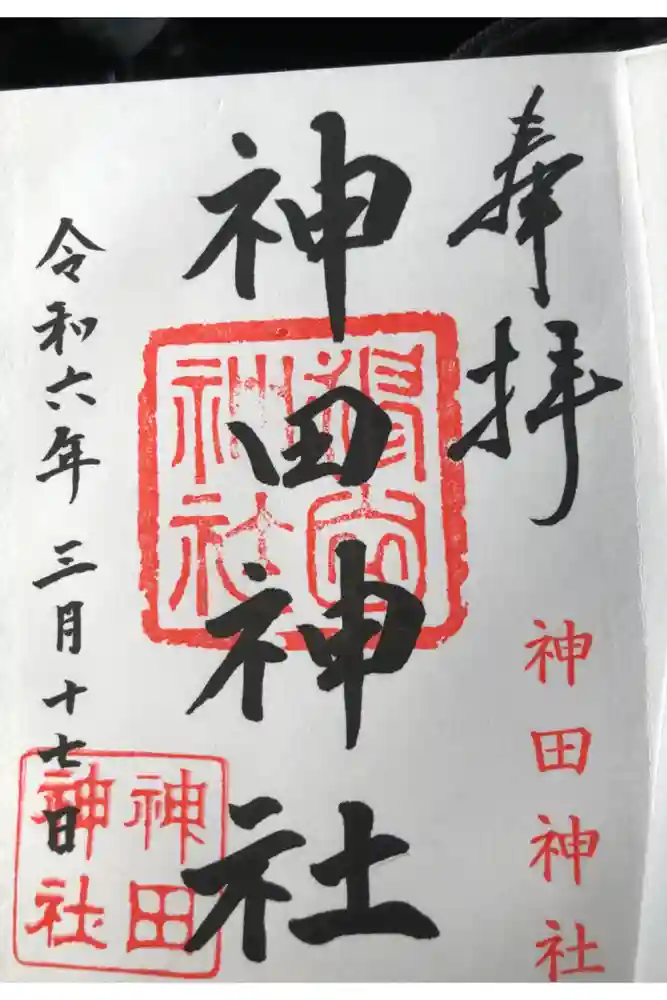 奉拝
神田神社
神田神社
神社
令和六年三月十七日
神田
神社